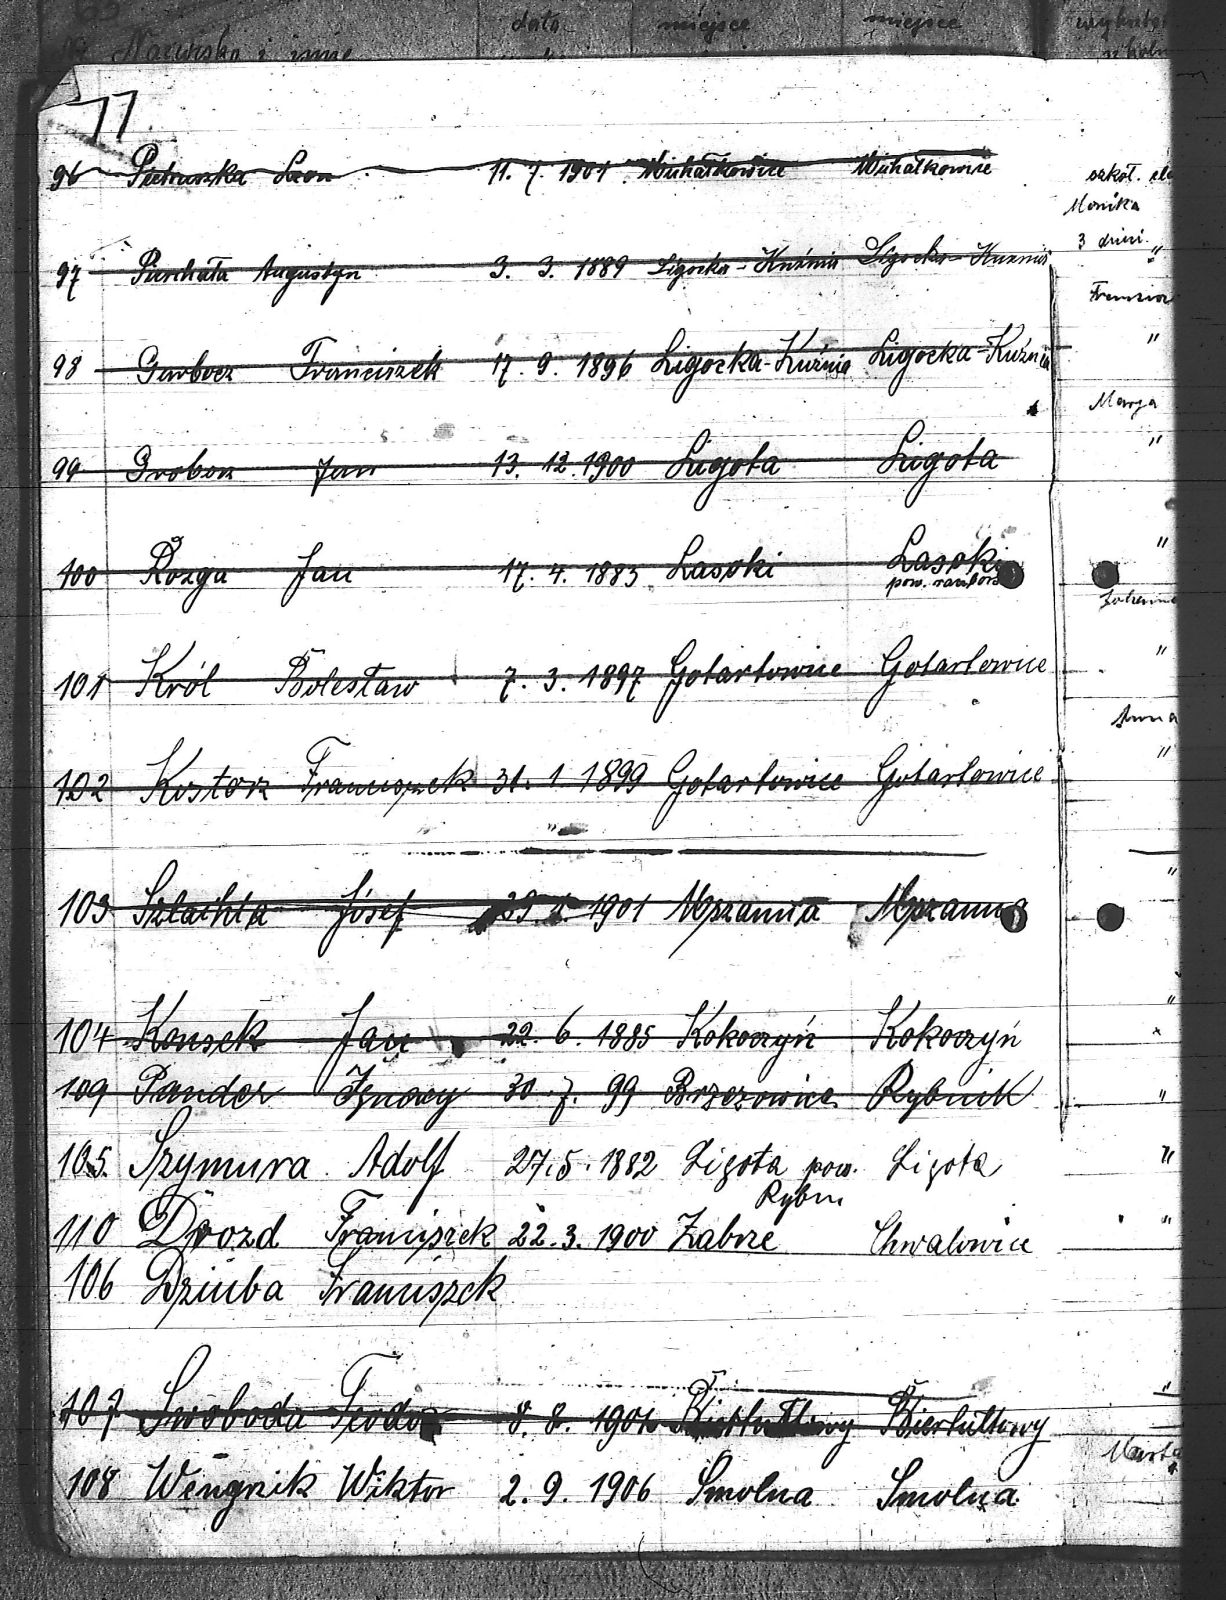 data miejsce miejsce
Nazwisko i imię
77
96 Leon 11. 7. 1901
szkoł.
Monika
97 Augustyn 3. 3. 1889 Ligocka-Kuźnia Ligocka-Kuźnia
3
"
98 Franciszek 17. 9. 1896 Ligocka-Kuźnia Ligocka-Kuźnia "
99 Jan 13. 12. 1900 Ligota Ligota "
100 Rozga Jan 17. 4. 1883 Lasoki Lasoki "
pow.
101 Król Bolesław 7. 3. 1897 Gotartowice Gotartowice "
Anna
102 Kostorz Franciszek 31. 1. 1899 Gotartowice Gotartowice "
"
103 Szlachta Józef 1901 Mszanna Mszanna "
104 Konsek Jan 22. 6. 1885 Kokoczyń Kokoczyń "
109 Pander Ignacy 30. 7. 99 Brzezowice Rybnik "
105. Szymura Adolf 27. 5. 1882 Ligota pow. Ligota "
Rybn
110 Drozd Franciszek 22. 3. 1900 Zabrze Chwałowice "
106 Dziuba Franciszek
107 Swoboda Teodor 8. 8. 1901 Biertułtowy "
108 Wengrzik Wiktor 2. 9. 1906 Smolna Smolna